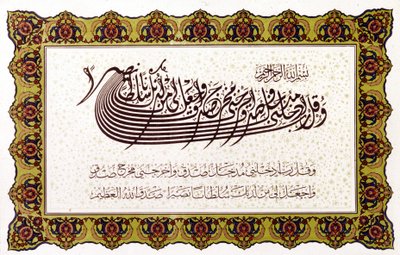 بسم الله الرحمن الرحيم
وقل رب ادخلني مدخل صدق واخرجني مخرج صدق واجعل لي من لدنك سلطانا نصيرا
وقل رب ادخلني مدخل صدق واخرجني مخرج صدق
واجعل لي من لدنك سلطانا نصيرا صدق الله العظيم